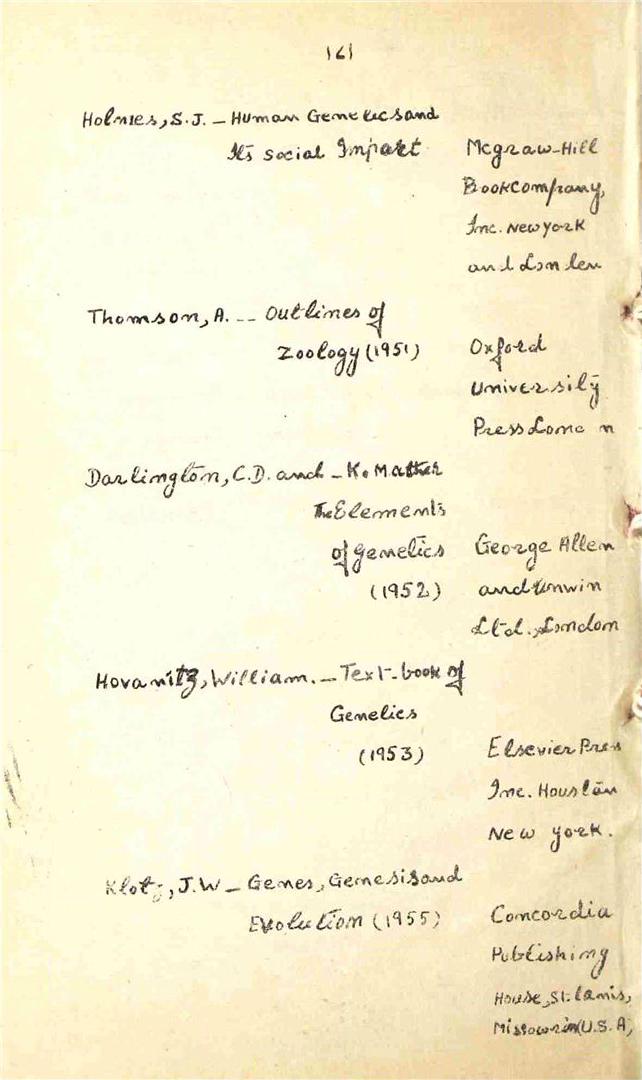 121
Holmes, S.J. - Human Genetics and
Its social Impact
Mcgraw-Hill
Book company,
Inc. New york
and London
Thomson, A. -- Outlines of
Zoology (1951)
Oxford
University
Press London
Darlington, C.D. and - K. Mather
The Elements
of genetics
(1952)
George Allen
and Unwin
Ltd., London
Hovanitz, William. - Text-book of
Genetics
(1953)
Elsevier Press
Inc. Houston
New york.
Klotz, J.W - Genes, Genesis and
Evolution (1955)
Concordia
Publishing
House, St. lanis,
(U.S.A,